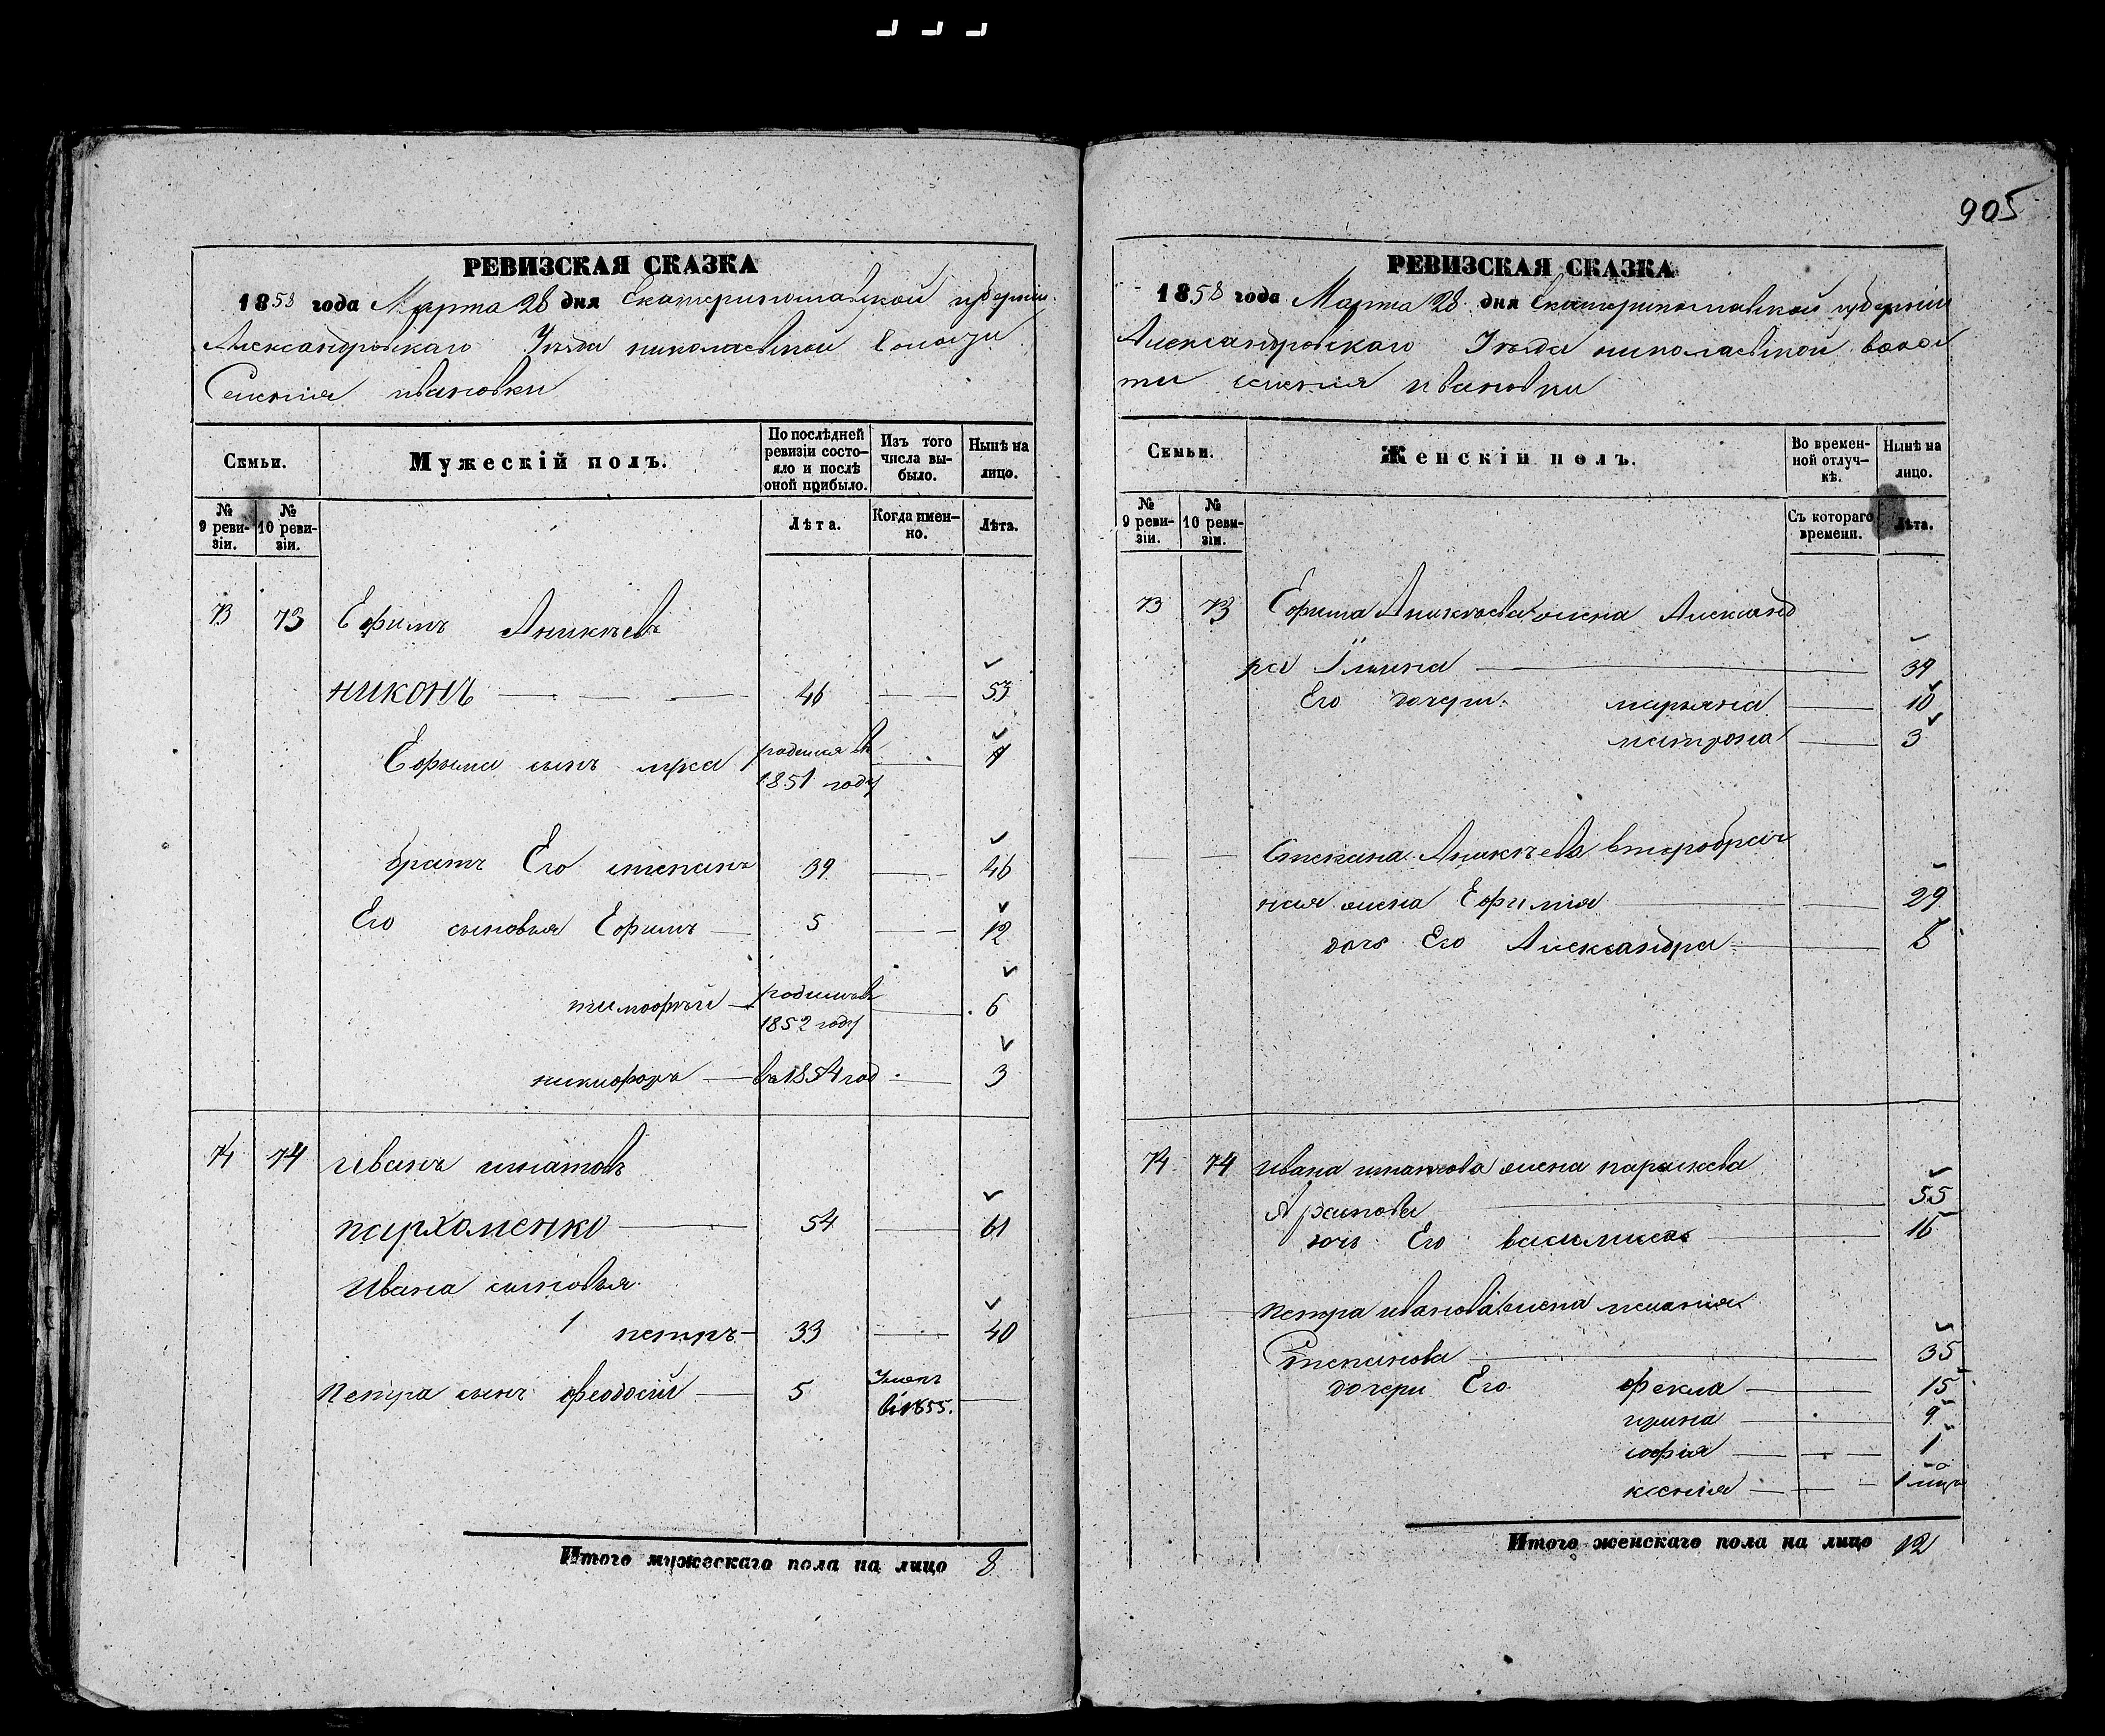 905
РЕВИЗСКАЯ СКАЗКА
1858 года Марта 28 дня Екатеринославской губернии
Александровскаго Уезда николаевской волости
Селения ивановки
Семьи.
Мужескій полъ.
По послѣдней ревизіи состо-
яло и послѣ
оной прибыло.
Изъ того
числа вы-
было.
Нынѣ на
лицо.
№
9 реви-
зіи.
№
10 реви-
зіи.
Лѣта.
Когда имен-
но.
Лѣта.
73 73 Ефимъ Аникѣевъ
никонъ 46 53
Ефима сынъ родился въ 7
1851 году
братъ Его степанъ 39 46
Его сыновья Ефимъ 5 12
тимофѣй родился въ 6
1852 году
никифоръ въ 1854 год 3
74 74 Иванъ игнатовъ
пархоменко 54 61
Ивана сыновья
1 петръ 33 40
Петра сынъ феодосий 5 Умеръ
въ 1855.
Итого мужескаго пола на лицо 8
РЕВИЗСКАЯ СКАЗКА
1858 года Марта 28 дня Екатеринославской губернии
Александровскаго Уезда николаевской волос
ти селения ивановки
Семьи.
Женскій полъ.
Во времен-
ной отлуч-
кѣ.
Нынѣ на
лицо.
№
9 реви-
зіи.
№
10 реви-
зіи.
Съ котораго
времени.
Лѣта.
73 73 Ефима Аникѣева жена Александ
ра 39
Его дочери марьяна 10
матрона 3
Степана Аникѣева второбрач
ная жена Ефимия 29
дочь Его Александра 8
74 74 ивана игнатова жена параскева
55
дочь Его василиса 16
петра иванова жена мелания
Степанова 35
дочери Его фекла 15
ирина 9
софия 1
ксения 1
Итого женскаго пола на лицо 12